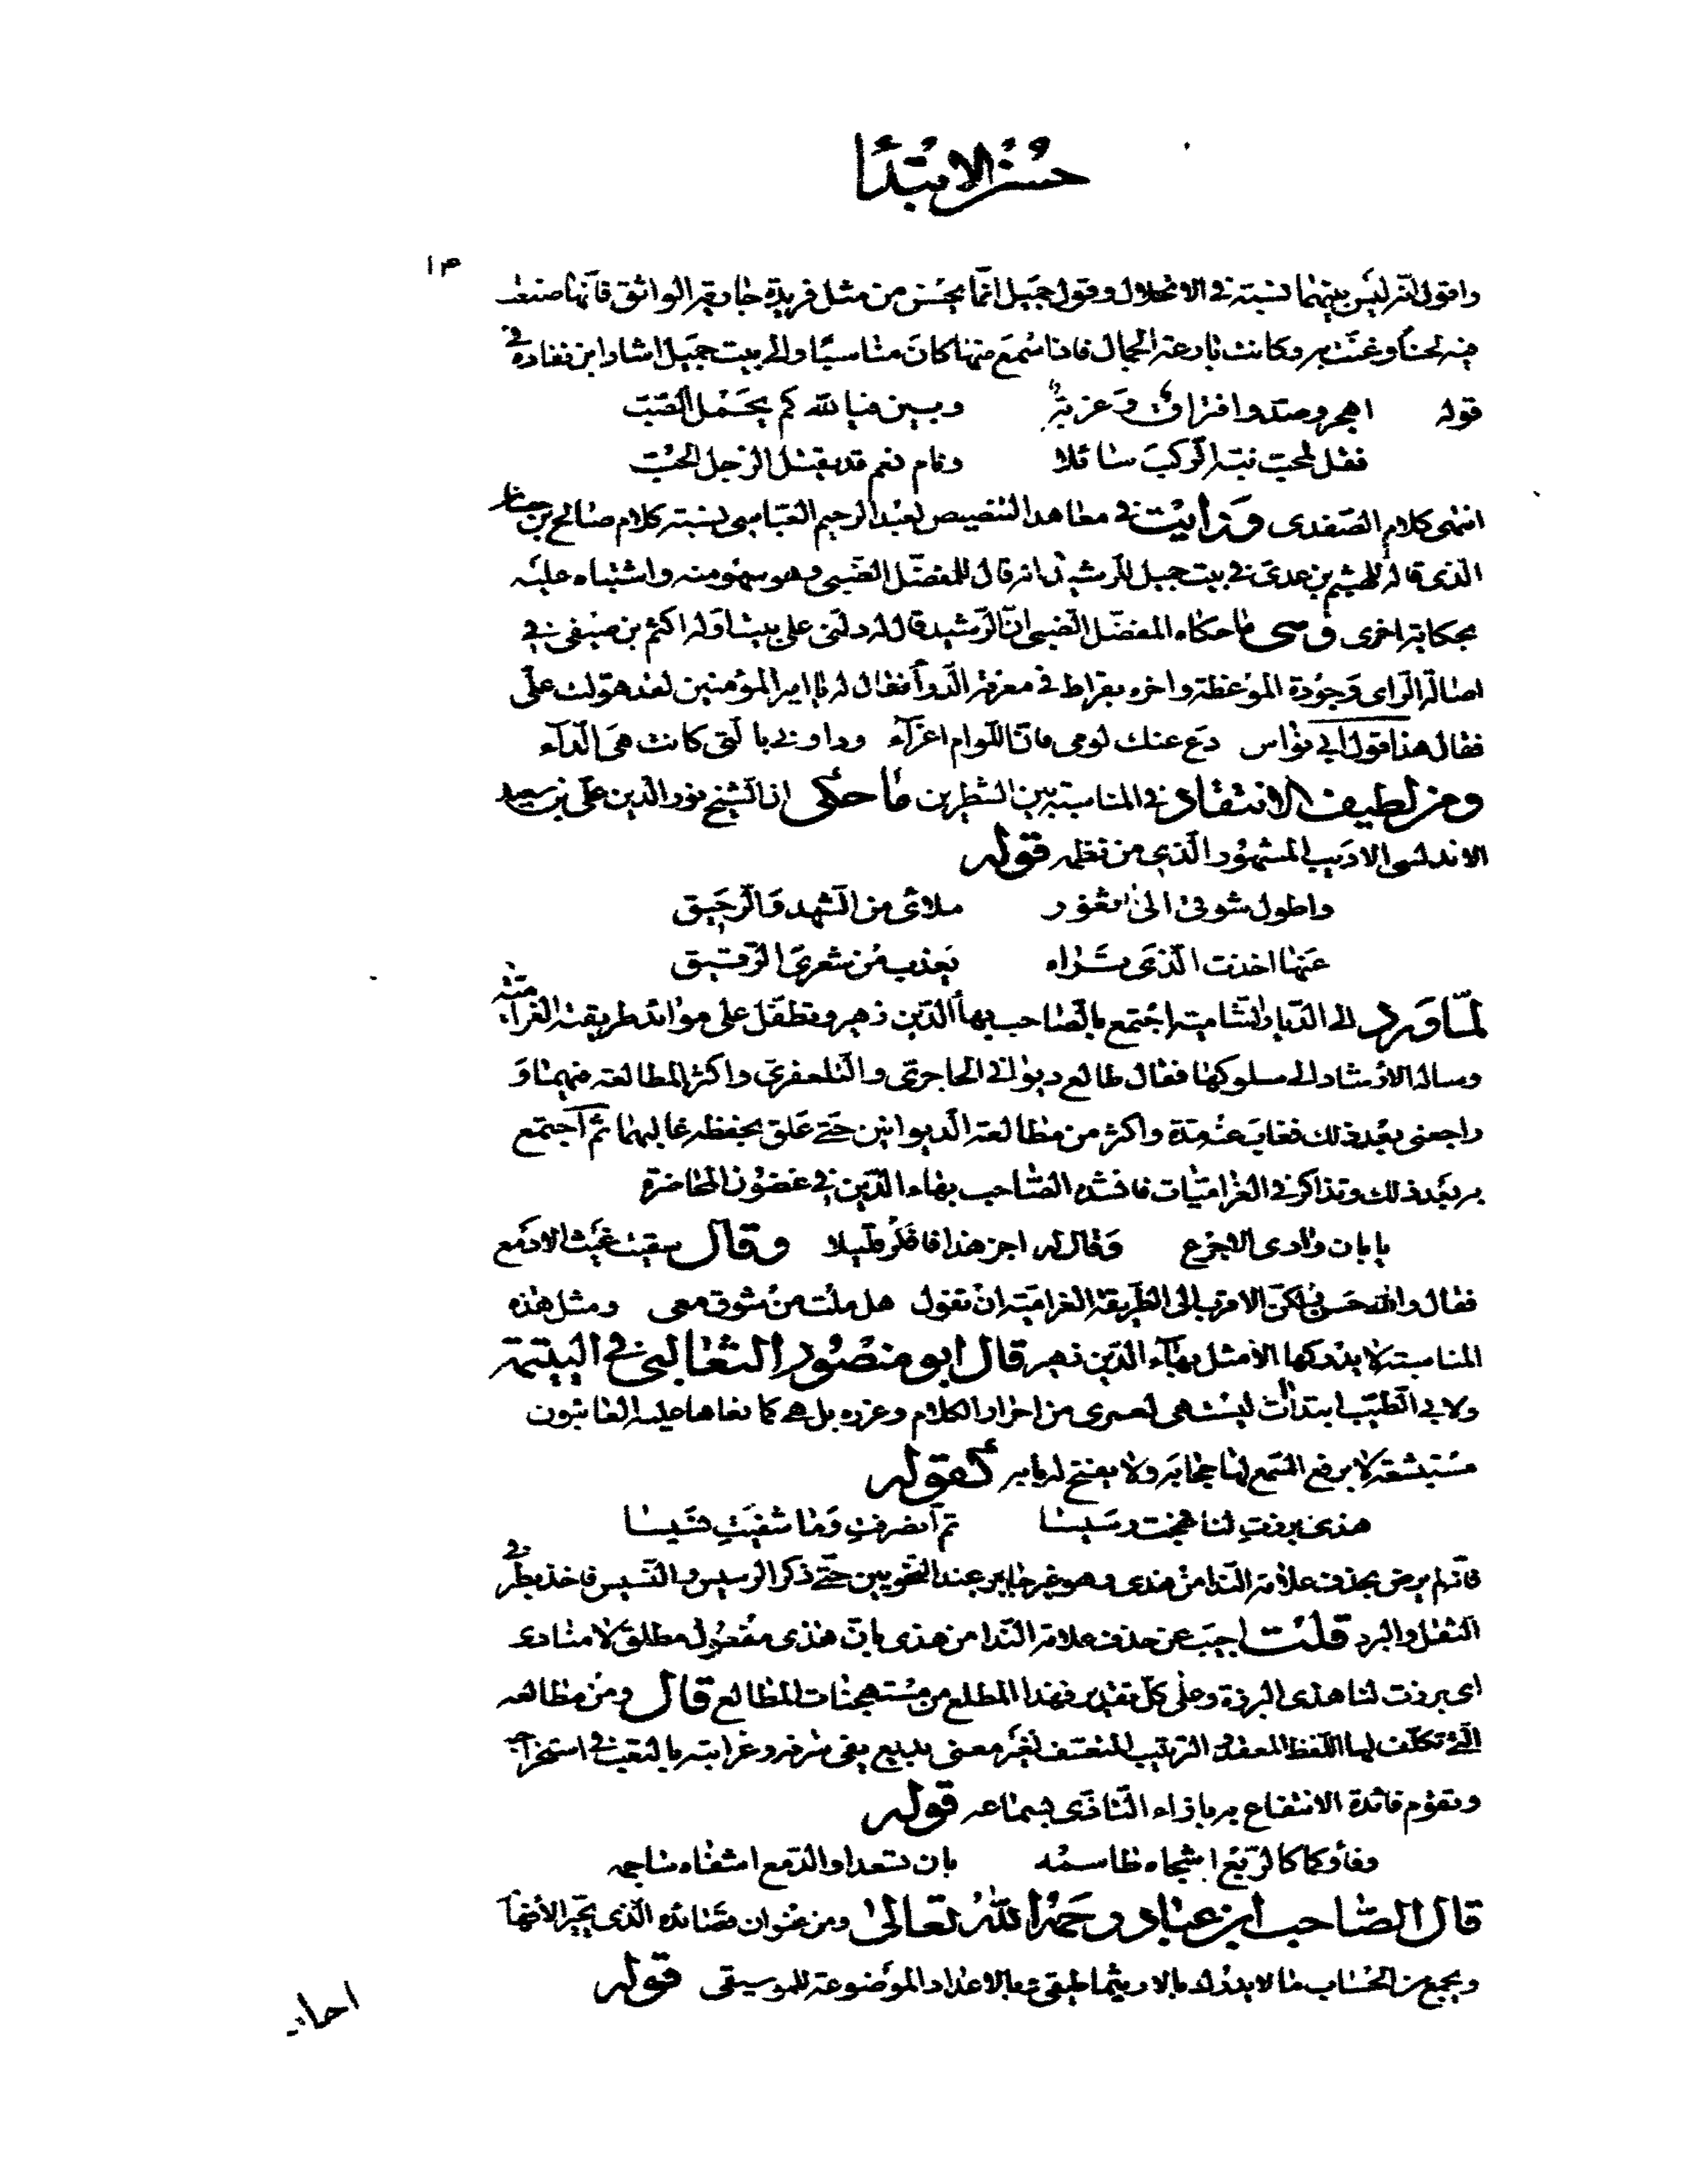 حسن الابتدأ
١٣
واقول انه ليس بينهما نسبة في الانحلال وقول جميل انما يحسن من مثل فريدة جارية الواثق فانها صنعت
فيه لحنا وغنت به وكانت بارعة الجمال فاذا سمع منها كان مناسبًا والى بيت جميل اشار ابن نفادة في
قوله اهجر وصد وافتراق وغربة وبين فيا لله كم يحمل الصب
فقل لمحب نبه الركب سائلا ونام نعم قد يقتل الرجل الحب
انتهى كلام الصفدى ورأيت في معاهد التنصيص لعبد الرحيم العباسى نسبة كلام صالح بن حسان
الذى قاله للهيثم بن عدى في بيت جميل للرشيد انه قال للمفضل الضبى وهو سهو منه واشتباه عليه
بحكاية اخرى وهى ما حكاه المفضل الضبى ان الرشيد قال له دلنى على بيت اوله اكثم بن صيفى في
اصالة الراى وجودة الموعظة واخره بقراط في معرفة الدوأ فقال له يا امير المؤمنين لقد هولت على
فقال هذا قول ابى نواس دع عنك لومى فان اللوام اغرآء وداونى بالتى كانت هى الدآء
ومن لطيف الانتقاد في المناسبة بين الشطرين ما حكى ان الشيخ نور الدين على بن سعيد
الاندلسى الاديب المشهور الذى من نظمه قوله
واطول شوقى الى ثغور ملائى من الشهد والرحيق
عنها اخذت الذى تراه يعذب من شعرى الرقيق
لما ورد الى الديار الشامية اجتمع بالصاحب بهأ الدين زهير وتطفل على موائد طريقته الغرامية
وساله الارشاد الى سلوكها فقال طالع ديوانى الحاجرى والتلعفرى واكثر المطالعة فيهما و
راجعنى بعد ذلك فغاب عنه مدة واكثر من مطالعة الديوانين حتى علق بحفظه غالبهما ثم اجتمع
به بعد ذلك وتذاكر في الغراميات فانشده الصاحب بهاء الدين في غضون المحاضرة
يا بان وادى الاجرع وقال له اجز هذا فافكر قليلا وقال سقيت غيث الادمع
فقال والله حسن ولكن الاقرب الى الطريقة الغرامية ان تقول هل ملت من شوق معى ومثل هذه
المناسبة لا يدركها الا مثل بهآء الدين زهير قال ابو منصور الثعالبى في اليتيمة
ولابى الطيب ابتدات ليست هى لعمرى من احرار الكلام وغرره بل هى كما نعاها عليه العائبون
مستبشعة لا يرفع السمع لها حجابه ولا يفتح له بابه كقوله
هذى برزت لنا فهجت رسيسا ثم انصرفت وما شفيت نسيسا
فانه لم يرض بحذف علامة الندا من هذى وهو غير جايز عند النحويين حتى ذكر الرسيس والنسيس فاخذ بطرفى
الثقل والبرد قلت اجيب عن حذف علامة الندا من هذى بان هذى مفعول مطلق لا منادى
اى برزت لنا هذى البرزة وعلى كل تقدير فهذا المطلع من مستهجنات المطالع قال ومن مطالعه
التى تكلف لها اللفظ المعقد والترتيب المتعسف لغير معنى بديع يفى شرفه وغرابته بالتعب في استخراجه
وتقوم فائدة الانتفاع به بازاء التاذى بسماعه قوله
وفاؤكما كالربع اشجاه طاسمه بان تسعدا والدمع اشفاه ساجمه
قال الصاحب ابن عباد رحمه الله تعالى ومن عنوان قصائده الذى يحير الأفهآ
ويجمع من الحساب ما لا يدرك بالارثماطيقى وبالاعداد الموضوعة للموسيقى قوله
احاد